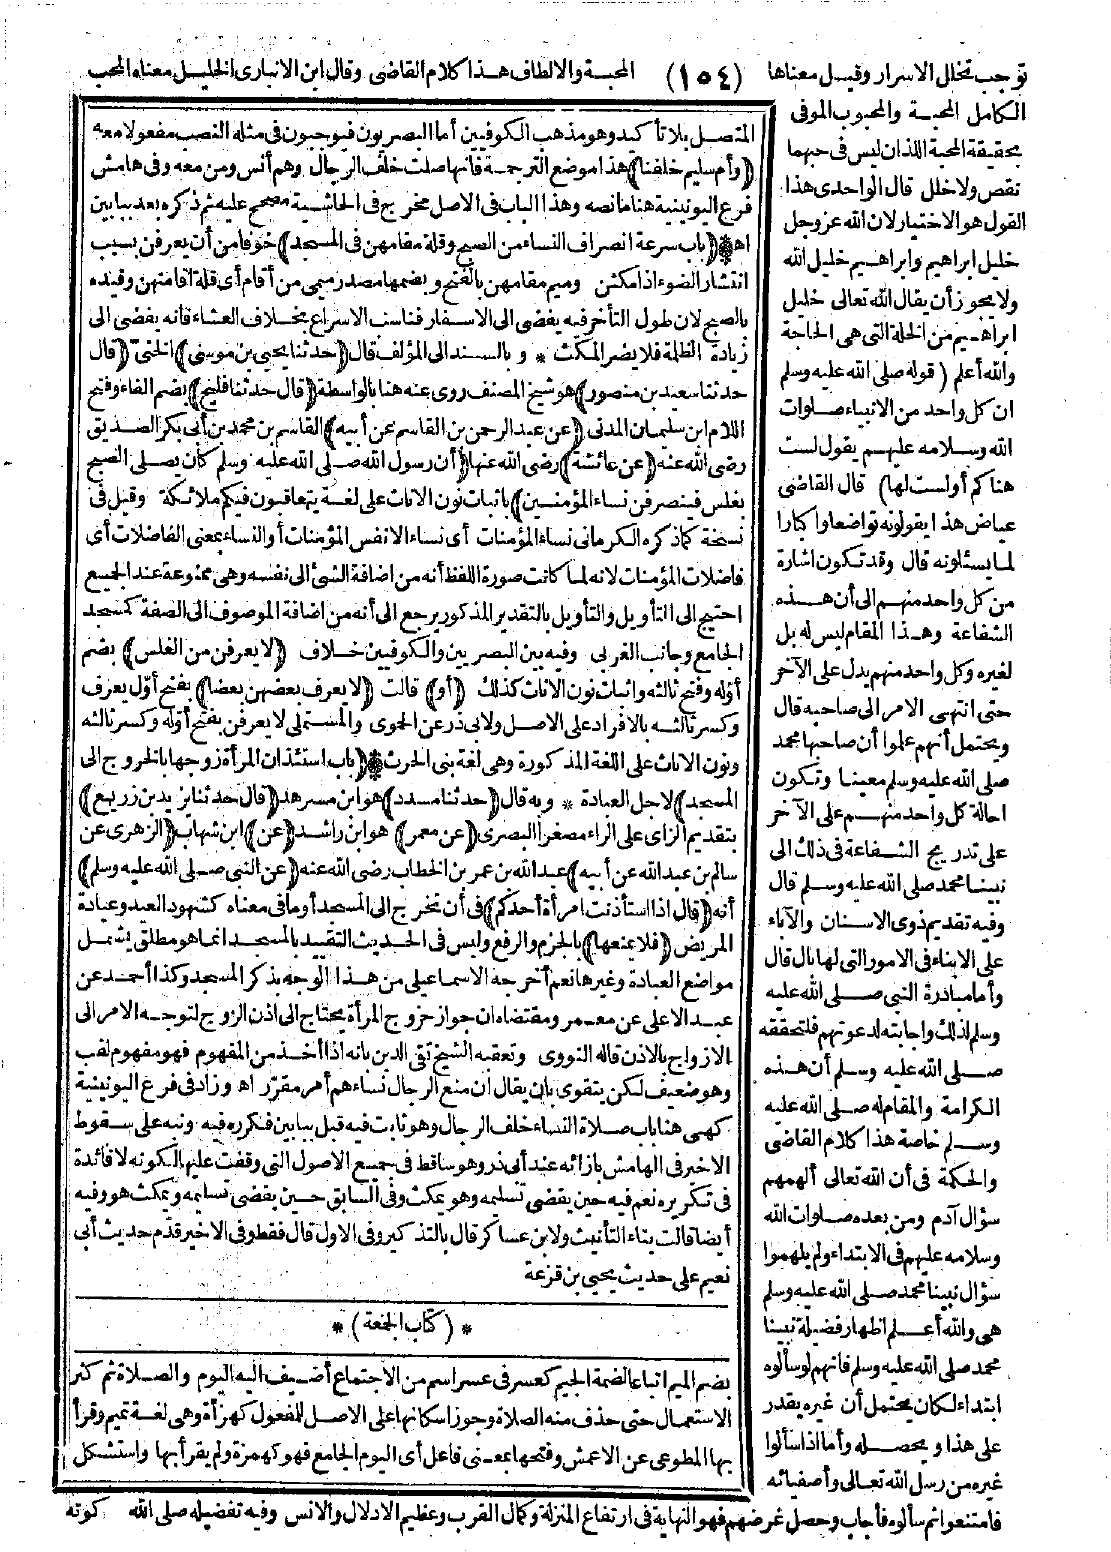 توجب تخلل الاسرار وقيل معناها (١٥٤) المحبة والالطاف هذا كلام القاضى وقال ابن الانبارى الخليل معناه المحب
الكامل المحبة والمحبوب الموفى
بحقيقة المحبة اللذان ليس فى حبهما
نقص ولا خلل قال الواحدى هذا
القول هو الاختيار لان الله عز وجل
خليل ابراهيم وابراهيم خليل الله
ولا يجوز أن يقال الله تعالى خليل
ابراهيم من الخلة التى هى الحاجة
والله أعلم (قوله صلى الله عليه وسلم
ان كل واحد من الانبياء صلوات
الله وسلامه عليهم يقول لست
هناكم أو لست لها) قال القاضى
عياض هذا يقولونه تواضعا واكبارا
لما يسئلونه قال وقد تكون اشارة
من كل واحد منهم الى أن هذه
الشفاعة وهذا المقام ليس له بل
لغيره وكل واحد منهم يدل على الآخر
حتى انتهى الامر الى صاحبه قال
ويحتمل أنهم علموا أن صاحبها محمد
صلى الله عليه وسلم معينا وتكون
احالة كل واحد منهم على الآخر
على تدريج الشفاعة فى ذلك الى
نبينا محمد صلى الله عليه وسلم قال
وفيه تقديم ذوى الاسنان والآباء
على الابناء فى الامور التى لها بال قال
وأما مبادرة النبى صلى الله عليه
وسلم لذلك واجابته لدعوتهم فلتحققه
صلى الله عليه وسلم أن هذه
الكرامة والمقام له صلى الله عليه
وسلم خاصة هذا كلام القاضى
والحكمة فى أن الله تعالى ألهمهم
سؤال آدم ومن بعده صلوات الله
وسلامه عليهم فى الابتداء ولم يلهموا
سؤال نبينا محمد صلى الله عليه وسلم
هى والله أعلم اظهار فضيلة نبينا
محمد صلى الله عليه وسلم فانهم لو سألوه
ابتداء لكان يحتمل أن غيره يقدر
على هذا ويحصله وأما اذا سألوا
غيره من رسل الله تعالى وأصفيائه
فامتنعوا ثم سألوه فأجاب وحصل غرضهم فهو النهاية فى ارتفاع المنزلة وكمال القرب وعظيم الادلال والانس وفيه تفضيله صلى الله كوته
المتصل بلا تأكيد وهو مذهب الكوفيين أما البصريون فيوجبون فى مثله النصب مفعولا معه
(وأم سليم خلفنا) هذا موضع الترجمة فانها صلت خلف الرجال وهم أنس ومن معه وفى هامش
فرع اليونينية هنا ما نصه وهذا الباب فى الاصل مخرج فى الحاشية مصحح عليه ثم ذكره بعد ببابين
اه *(باب سرعة انصراف النساء من الصبح وقلة مقامهن فى المسجد) خوفا من أن يعرفن بسبب
انتشار الضوء اذا مكثن وميم مقامهن بالفتح وبضمها مصدر ميمى من أقام أى قلة اقامتهن وقيده
بالصبح لان طول التأخر فيه يفضى الى الاسفار فناسب الاسراع بخلاف العشاء فانه يفضى الى
زيادة الظلمة فلا يضر المكث * وبالسند الى المؤلف قال (حدثنا يحيى بن موسى) الختى (قال
حدثنا سعيد بن منصور) هو شيخ المصنف روى عنه هنا بالواسطة (قال حدثنا فليح) بضم الفاء وفتح
اللام ابن سليمان المدنى (عن عبد الرحمن بن القاسم عن أبيه) القاسم بن محمد بن أبى بكر الصديق
رضى الله عنه (عن عائشة) رضى الله عنها (أن رسول الله صلى الله عليه وسلم كان يصلى الصبح
بغلس فينصرفن نساء المؤمنين) باثبات نون الاناث على لغة يتعاقبون فيكم ملائكة وقيل فى
نسخة كما ذكره الكرمانى نساء المؤمنات أى نساء الانفس المؤمنات أو النساء بمعنى الفاضلات أى
فاضلات المؤمنات لانه لما كانت صورة اللفظ أنه من اضافة الشئ الى نفسه وهى ممنوعة عند الجميع
احتيج الى التأويل والتأويل بالتقدير المذكور يرجع الى أنه من اضافة الموصوف الى الصفة كمسجد
الجامع وجانب الغربى وفيه بين البصريين والكوفيين خلاف (لا يعرفن من الغلس) بضم
أوله وفتح ثالثه واثبات نون الاناث كذلك (أو) قالت (لا يعرف بعضهن بعضا) بفتح أول يعرف
وكسر ثالثه بالافراد على الاصل ولابى ذر عن الحموى والمستملى لا يعرفن بفتح أوله وكسر ثالثه
ونون الاناث على اللغة المذكورة وهى لغة بنى الحرث *(باب استئذان المرأة زوجها بالخروج الى
المسجد) لاجل العبادة * وبه قال (حدثنا مسدد) هو ابن مسرهد (قال حدثنا يزيد بن زريع)
بتقديم الزاى على الراء مصغرا البصرى (عن معمر) هو ابن راشد (عن) ابن شهاب (الزهرى عن
سالم بن عبد الله عن أبيه) عبد الله بن عمر بن الخطاب رضى الله عنه (عن النبى صلى الله عليه وسلم)
أنه (قال اذا استأذنت امرأة أحدكم) فى أن تخرج الى المسجد أو ما فى معناه كشهود العيد وعيادة
المريض (فلا يمنعها) بالجزم والرفع وليس فى الحديث التقييد بالمسجد انما هو مطلق يشمل
مواضع العبادة وغيرها نعم أخرجه الاسماعيلى من هذا الوجه بذكر المسجد وكذا أحمد عن
عبد الاعلى عن معمر ومقتضاه ان جواز خروج المرأة يحتاج الى اذن الزوج لتوجه الامر الى
الازواج بالاذن قاله النووى وتعقبه الشيخ تقى الدين بانه اذا أخذ من المفهوم فهو مفهوم لقب
وهو ضعيف لكن يتقوى بان يقال ان منع الرجال نساءهم أمر مقرر اه وزاد فى فرع اليونينية
كهى هنا باب صلاة النساء خلف الرجال وهو ثابت فيه قبل ببابين فكرره فيه ونبه على سقوط
الاخير فى الهامش بازائه عند أبى ذر وهو ساقط فى جميع الاصول التى وقفت عليها لكونه لا فائدة
فى تكريره نعم فيه حين يقضى تسليمه وهو يمكث وفى السابق حين يقضى تسليمه ويمكث هو وفيه
أيضا قالت بتاء التأنيث ولابن عساكر قال بالتذكير وفى الاول قال فقط وفى الاخير قدم حديث أبى
نعيم على حديث يحيى بن قزعة
* (كتاب الجمعة) *
بضم الميم اتباعا لضمة الجيم كعسر فى عسر اسم من الاجتماع أضيف اليه اليوم والصلاة ثم كثر
الاستعمال حتى حذف منه الصلاة وجوز اسكانها على الاصل للمفعول كهزأة وهى لغة تميم وقرأ
بها المطوعى عن الاعمش وفتحها بمعنى فاعل أى اليوم الجامع فهو كهمزة ولم يقرأ بها واستشكل